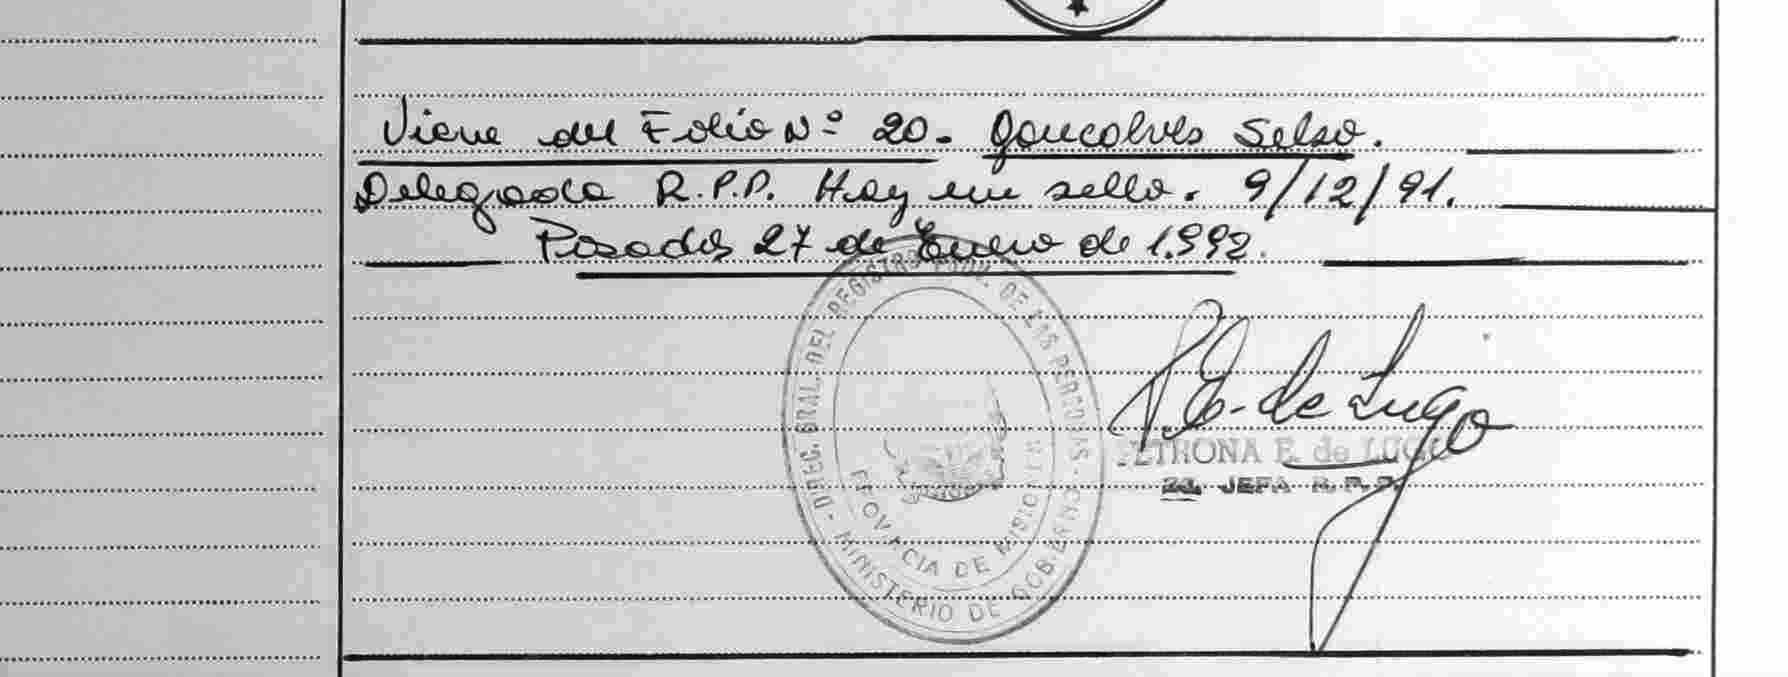 Viene del Folio Nº 20. Goncalves Selso.
Delegada R.P.P. Hay un sello. 9/12/91.
Posadas 27 de Enero de 1.992.
DREC. GRAL. DEL REGISTRO PROV. DE LAS PERSONAS.
PROVINCIA DE MISIONES
- MINISTERIO DE GOBIERNO
P. E. de Lugo
PETRONA E. de LUGO
2a. JEFA R.P.P.